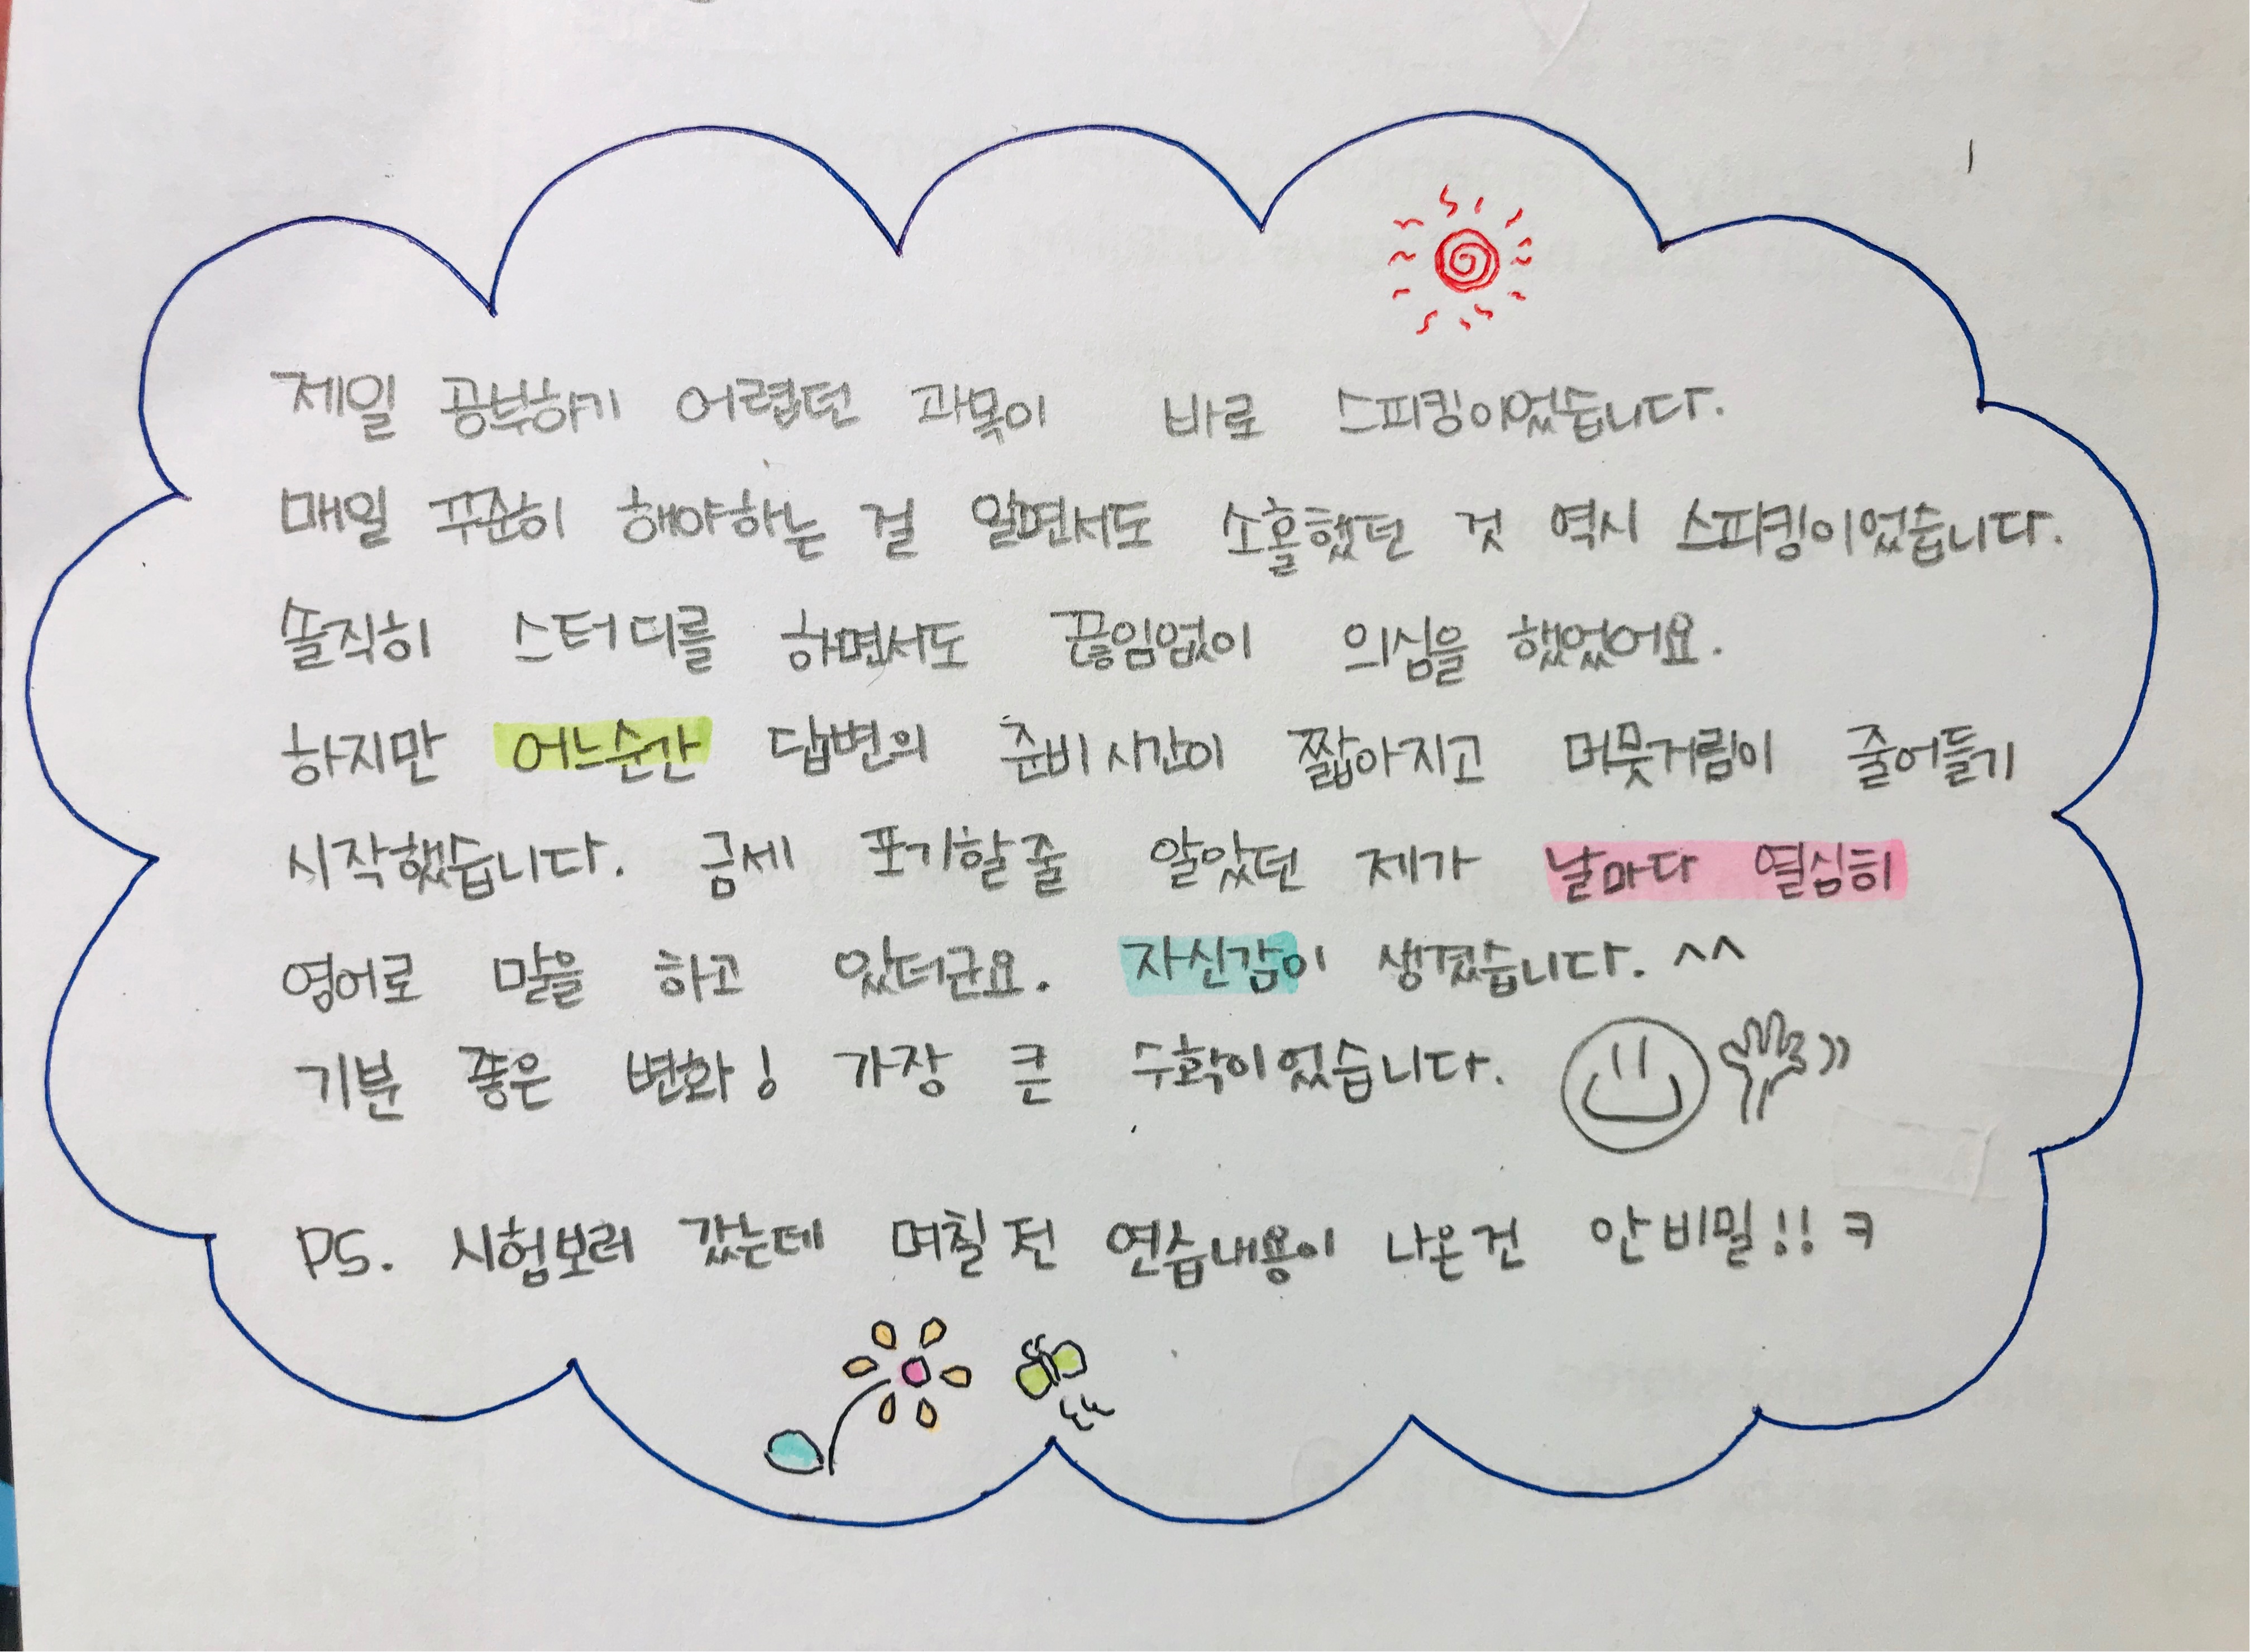 제일 공부하기 어렵던 과목이 바로 스피킹이었습니다.
매일 꾸준히 해야하는 걸 알면서도 소홀했던 것 역시 스피킹이었습니다.
솔직히 스터디를 하면서도 끊임없이 의심을 했었어요.
하지만 어느순간 답변의 준비시간이 짧아지고 머뭇거림이 줄어들기
시작했습니다. 금세 포기할줄 알았던 제가 날마다 열심히
영어로 말을 하고 있더군요. 자신감이 생겼습니다. ^^
기분 좋은 변화! 가장 큰 수확이었습니다.
PS. 시험보러 갔는데 며칠전 연습내용이 나온건 안비밀!! ㅋ